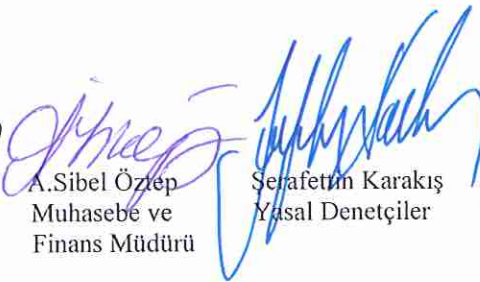 A.Sibel Öztep
Muhasebe ve
Finans Müdürü
Şerafettin Karakış
Yasal Denetçiler